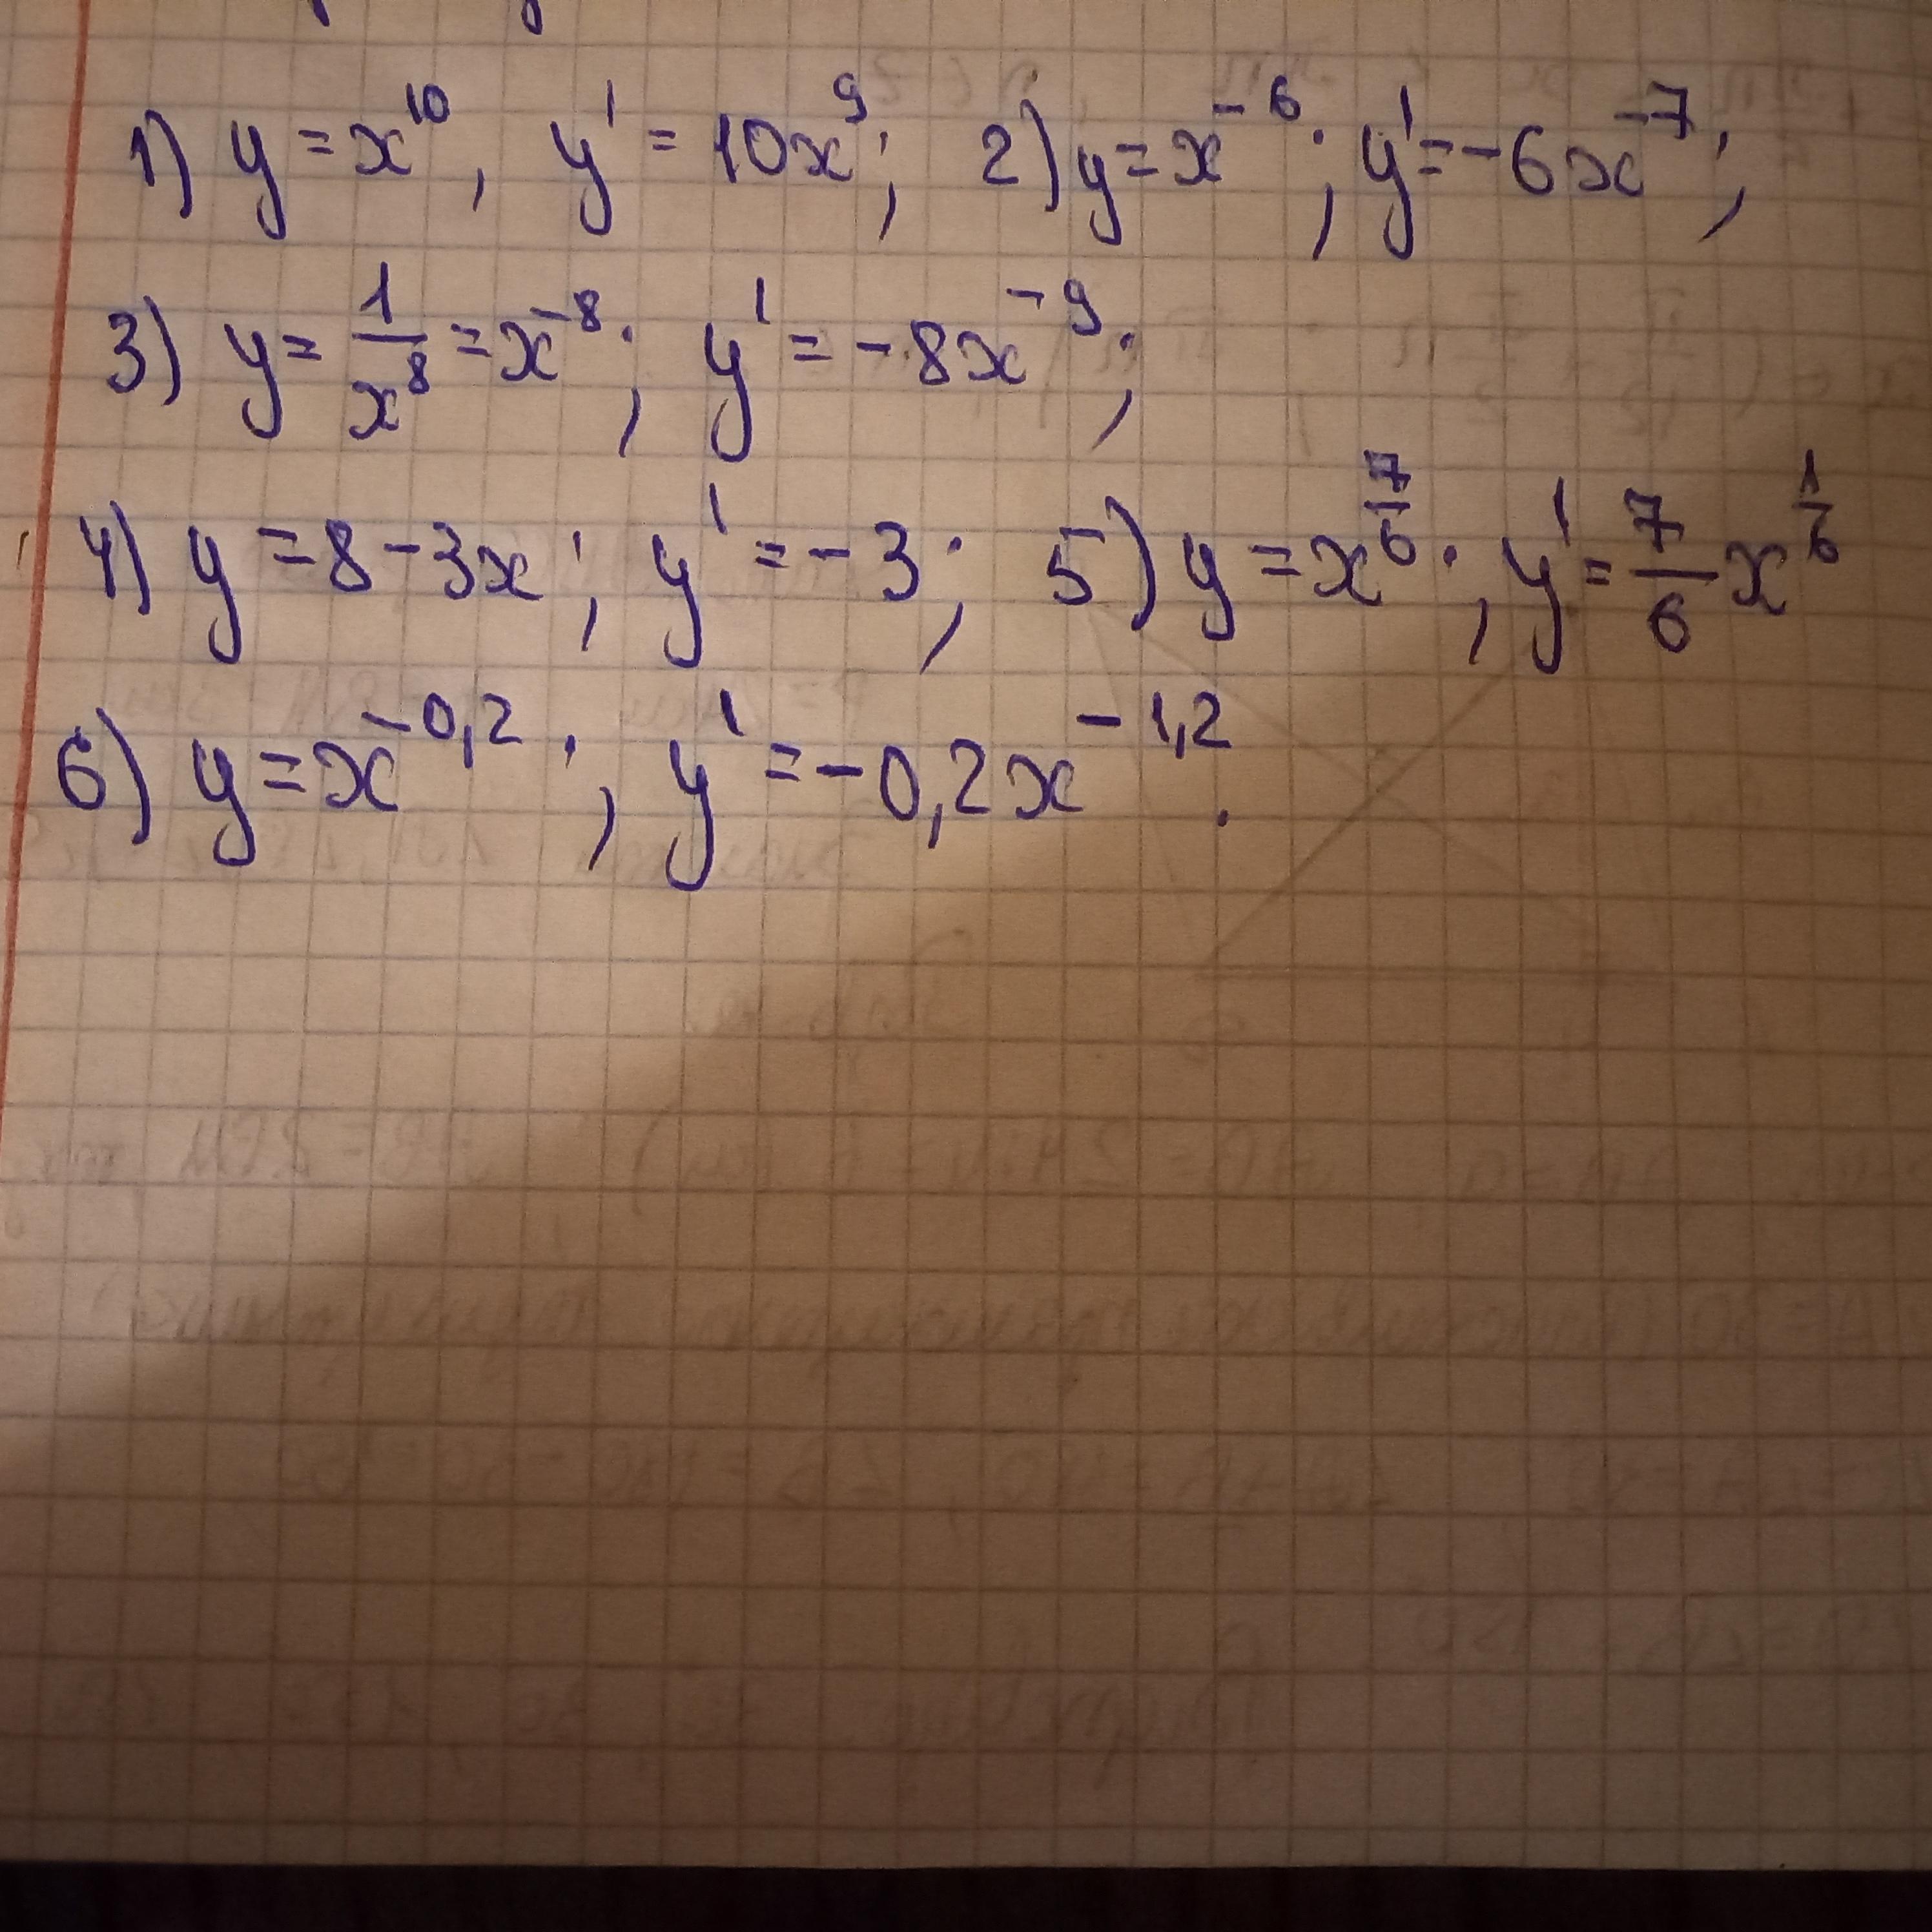 1) y = x¹⁰, y' = 10x⁹; 2) y = x⁻⁶; y' = -6x⁻⁷;
3) y = 1/x⁸ = x⁻⁸; y' = -8x⁻⁹;
4) y = 8 - 3x; y' = -3; 5) y = x^(7/6); y' = 7/6 x^(1/6)
6) y = x^(-0,2); y' = -0,2x^(-1,2).